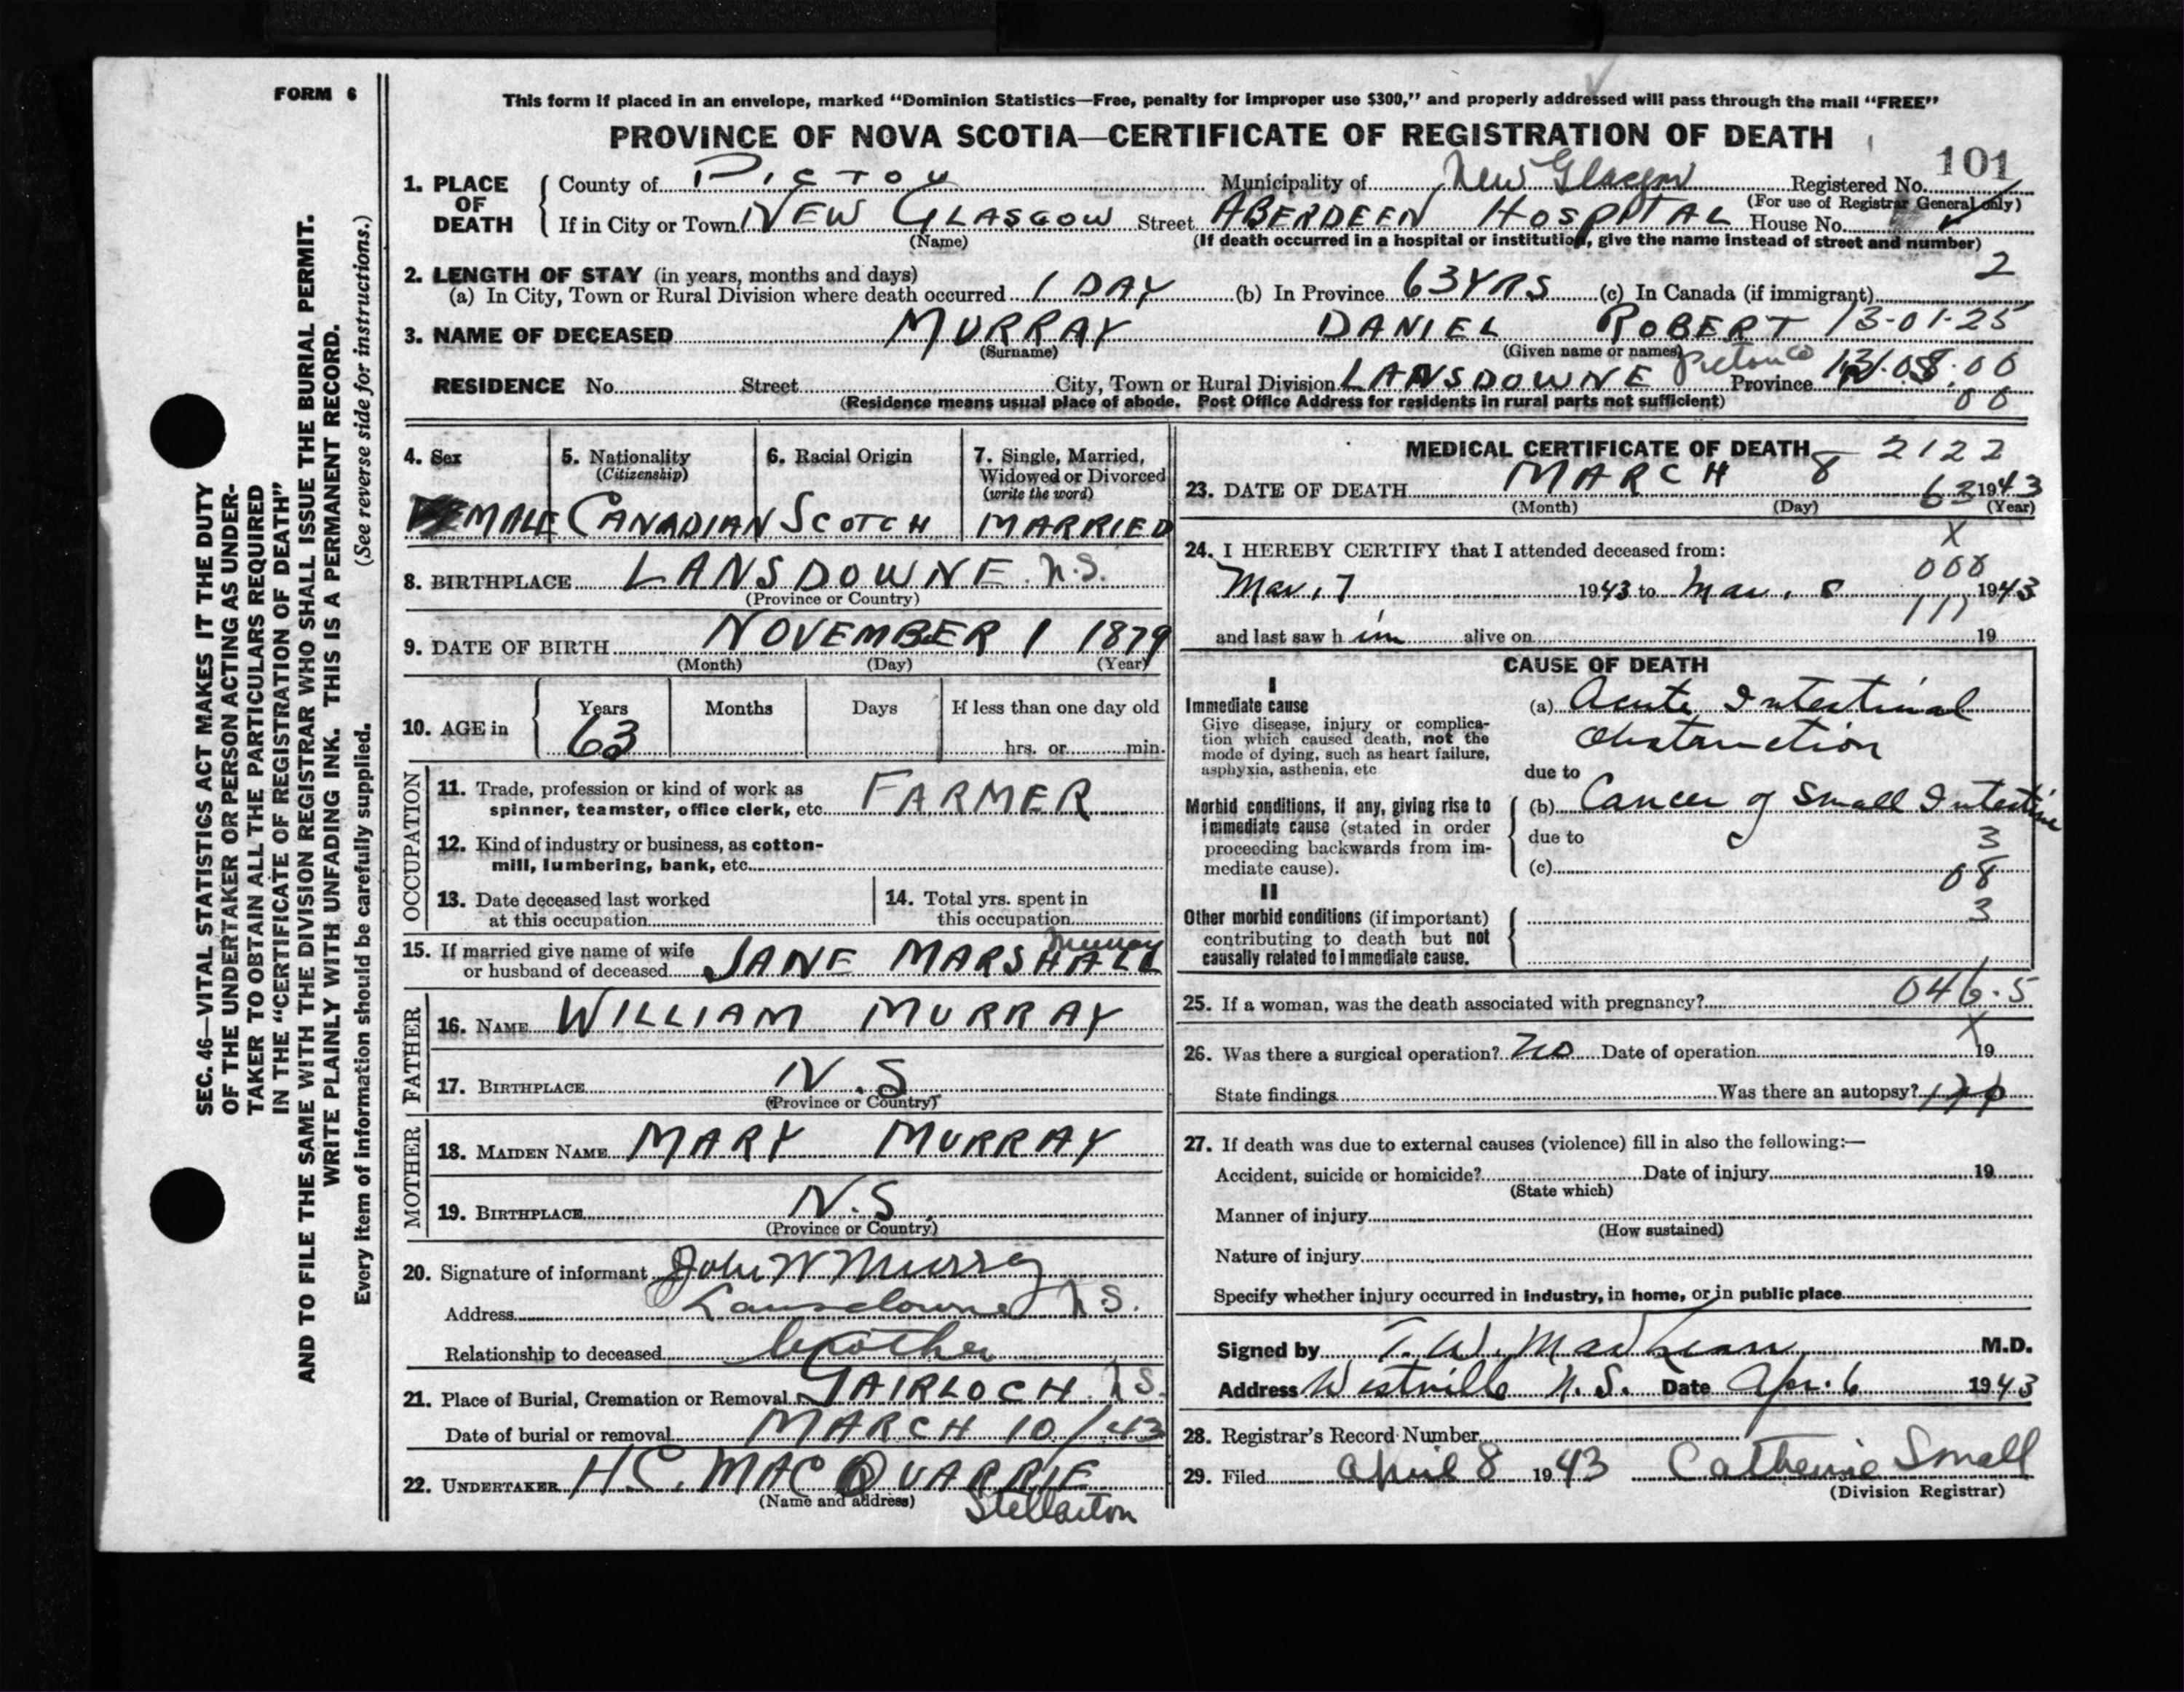 FORM 6
This form if placed in an envelope, marked "Dominion Statistics—Free, penalty for improper use $300," and properly addressed will pass through the mail "FREE"
PROVINCE OF NOVA SCOTIA—CERTIFICATE OF REGISTRATION OF DEATH
101
1. PLACE OF DEATH
County of PICTOU Municipality of New Glasgow Registered No.
(For use of Registrar General only)
If in City or Town NEW GLASGOW Street ABERDEEN HOSPITAL House No.
(Name) (If death occurred in a hospital or institution, give the name instead of street and number)
2
2. LENGTH OF STAY (in years, months and days)
(a) In City, Town or Rural Division where death occurred 1 DAY (b) In Province 63 YRS (c) In Canada (if immigrant)
3. NAME OF DECEASED MURRAY DANIEL ROBERT 13-01-25
(Surname) (Given name or names)
RESIDENCE No. Street City, Town or Rural Division LANSDOWNE Pictou Co Province
(Residence means usual place of abode. Post Office Address for residents in rural parts not sufficient)
00
4. Sex 5. Nationality (Citizenship) 6. Racial Origin 7. Single, Married, Widowed or Divorced (write the word)
MALE CANADIAN SCOTCH MARRIED
8. BIRTHPLACE LANSDOWNE N.S.
(Province or Country)
9. DATE OF BIRTH NOVEMBER 1 1879
(Month) (Day) (Year)
10. AGE in Years Months Days If less than one day old
63 hrs. or min.
OCCUPATION
11. Trade, profession or kind of work as spinner, teamster, office clerk, etc. FARMER
12. Kind of industry or business, as cotton-mill, lumbering, bank, etc.
13. Date deceased last worked at this occupation
14. Total yrs. spent in this occupation
15. If married give name of wife or husband of deceased JANE MARSHALL Murray
FATHER
16. NAME WILLIAM MURRAY
17. BIRTHPLACE N.S
(Province or Country)
MOTHER
18. MAIDEN NAME MARY MURRAY
19. BIRTHPLACE N.S.
(Province or Country)
20. Signature of informant John W Murray
Address Lansdowne N.S.
Relationship to deceased brother
21. Place of Burial, Cremation or Removal GAIRLOCH N.S.
Date of burial or removal MARCH 10/43
22. UNDERTAKER H.C. MACQUARRIE
(Name and address) Stellarton
MEDICAL CERTIFICATE OF DEATH 2122
23. DATE OF DEATH MARCH 8 63 1943
(Month) (Day) (Year)
X
24. I HEREBY CERTIFY that I attended deceased from:
000
Mar. 7 1943 to Mar. 8 1943
111
and last saw h im alive on 19
CAUSE OF DEATH
I
Immediate cause
Give disease, injury or complication which caused death, not the mode of dying, such as heart failure, asphyxia, asthenia, etc
(a) Acute Intestinal
Obstruction
due to
Morbid conditions, if any, giving rise to immediate cause (stated in order proceeding backwards from immediate cause).
(b) Cancer of Small Intestine
due to 3
(c) 08
II
Other morbid conditions (if important) contributing to death but not causally related to immediate cause.
3
25. If a woman, was the death associated with pregnancy? 046.5
X
26. Was there a surgical operation? No Date of operation 19
State findings Was there an autopsy?
27. If death was due to external causes (violence) fill in also the following:—
Accident, suicide or homicide? Date of injury 19
(State which)
Manner of injury
(How sustained)
Nature of injury
Specify whether injury occurred in industry, in home, or in public place
Signed by T. W. MacLean M.D.
Address Westville N.S. Date Apr. 6 1943
28. Registrar's Record Number
29. Filed April 8 1943 Catherine Small
(Division Registrar)
SEC. 46—VITAL STATISTICS ACT MAKES IT THE DUTY
OF THE UNDERTAKER OR PERSON ACTING AS UNDER-
TAKER TO OBTAIN ALL THE PARTICULARS REQUIRED
IN THE "CERTIFICATE OF REGISTRATION OF DEATH"
AND TO FILE THE SAME WITH THE DIVISION REGISTRAR WHO SHALL ISSUE THE BURIAL PERMIT.
WRITE PLAINLY WITH UNFADING INK. THIS IS A PERMANENT RECORD.
Every item of information should be carefully supplied. (See reverse side for instructions.)